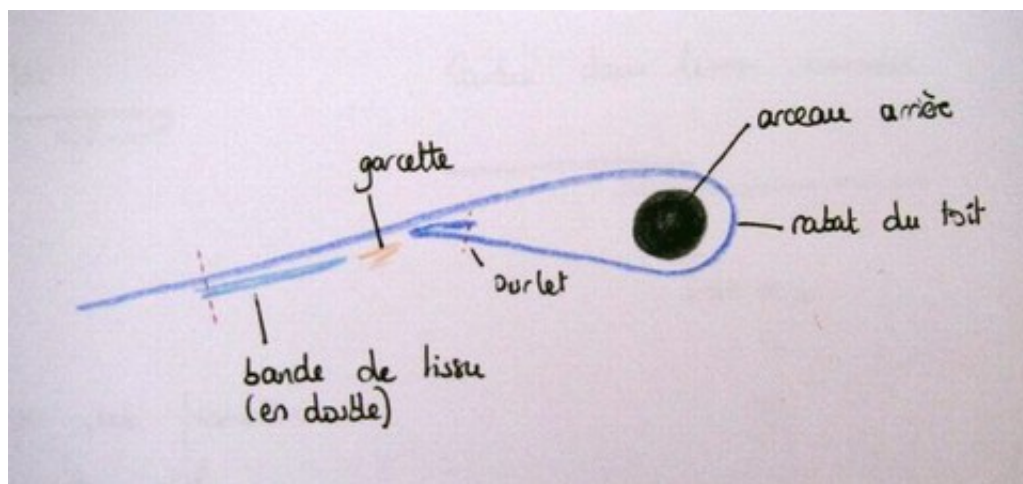 arceau arrière
garcette
rabat du toit
ourlet
bande de tissu
(en double)